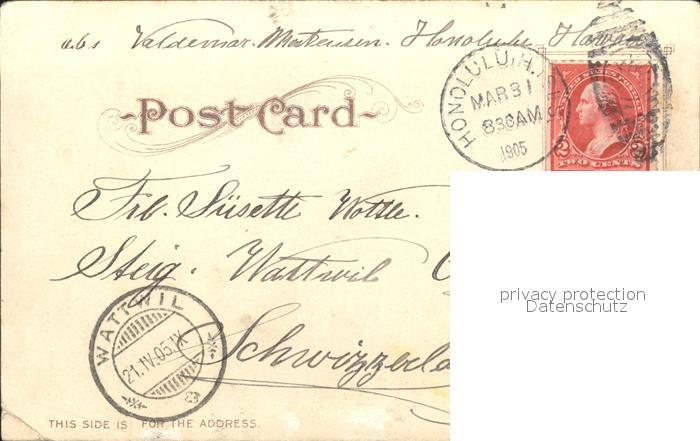 Valdemar Mortensen. Honolulu Hawaii
HONOLULU, H.
MAR 31
830AM
1905
UNITED STATES POSTAGE
2 2
TWO CENTS
Post Card
Frl. Süsette
Steig. Wattwil
Schwizzerla
WATTWIL
21.IV.05.IX
privacy protection
Datenschutz
THIS SIDE IS FOR THE ADDRESS.